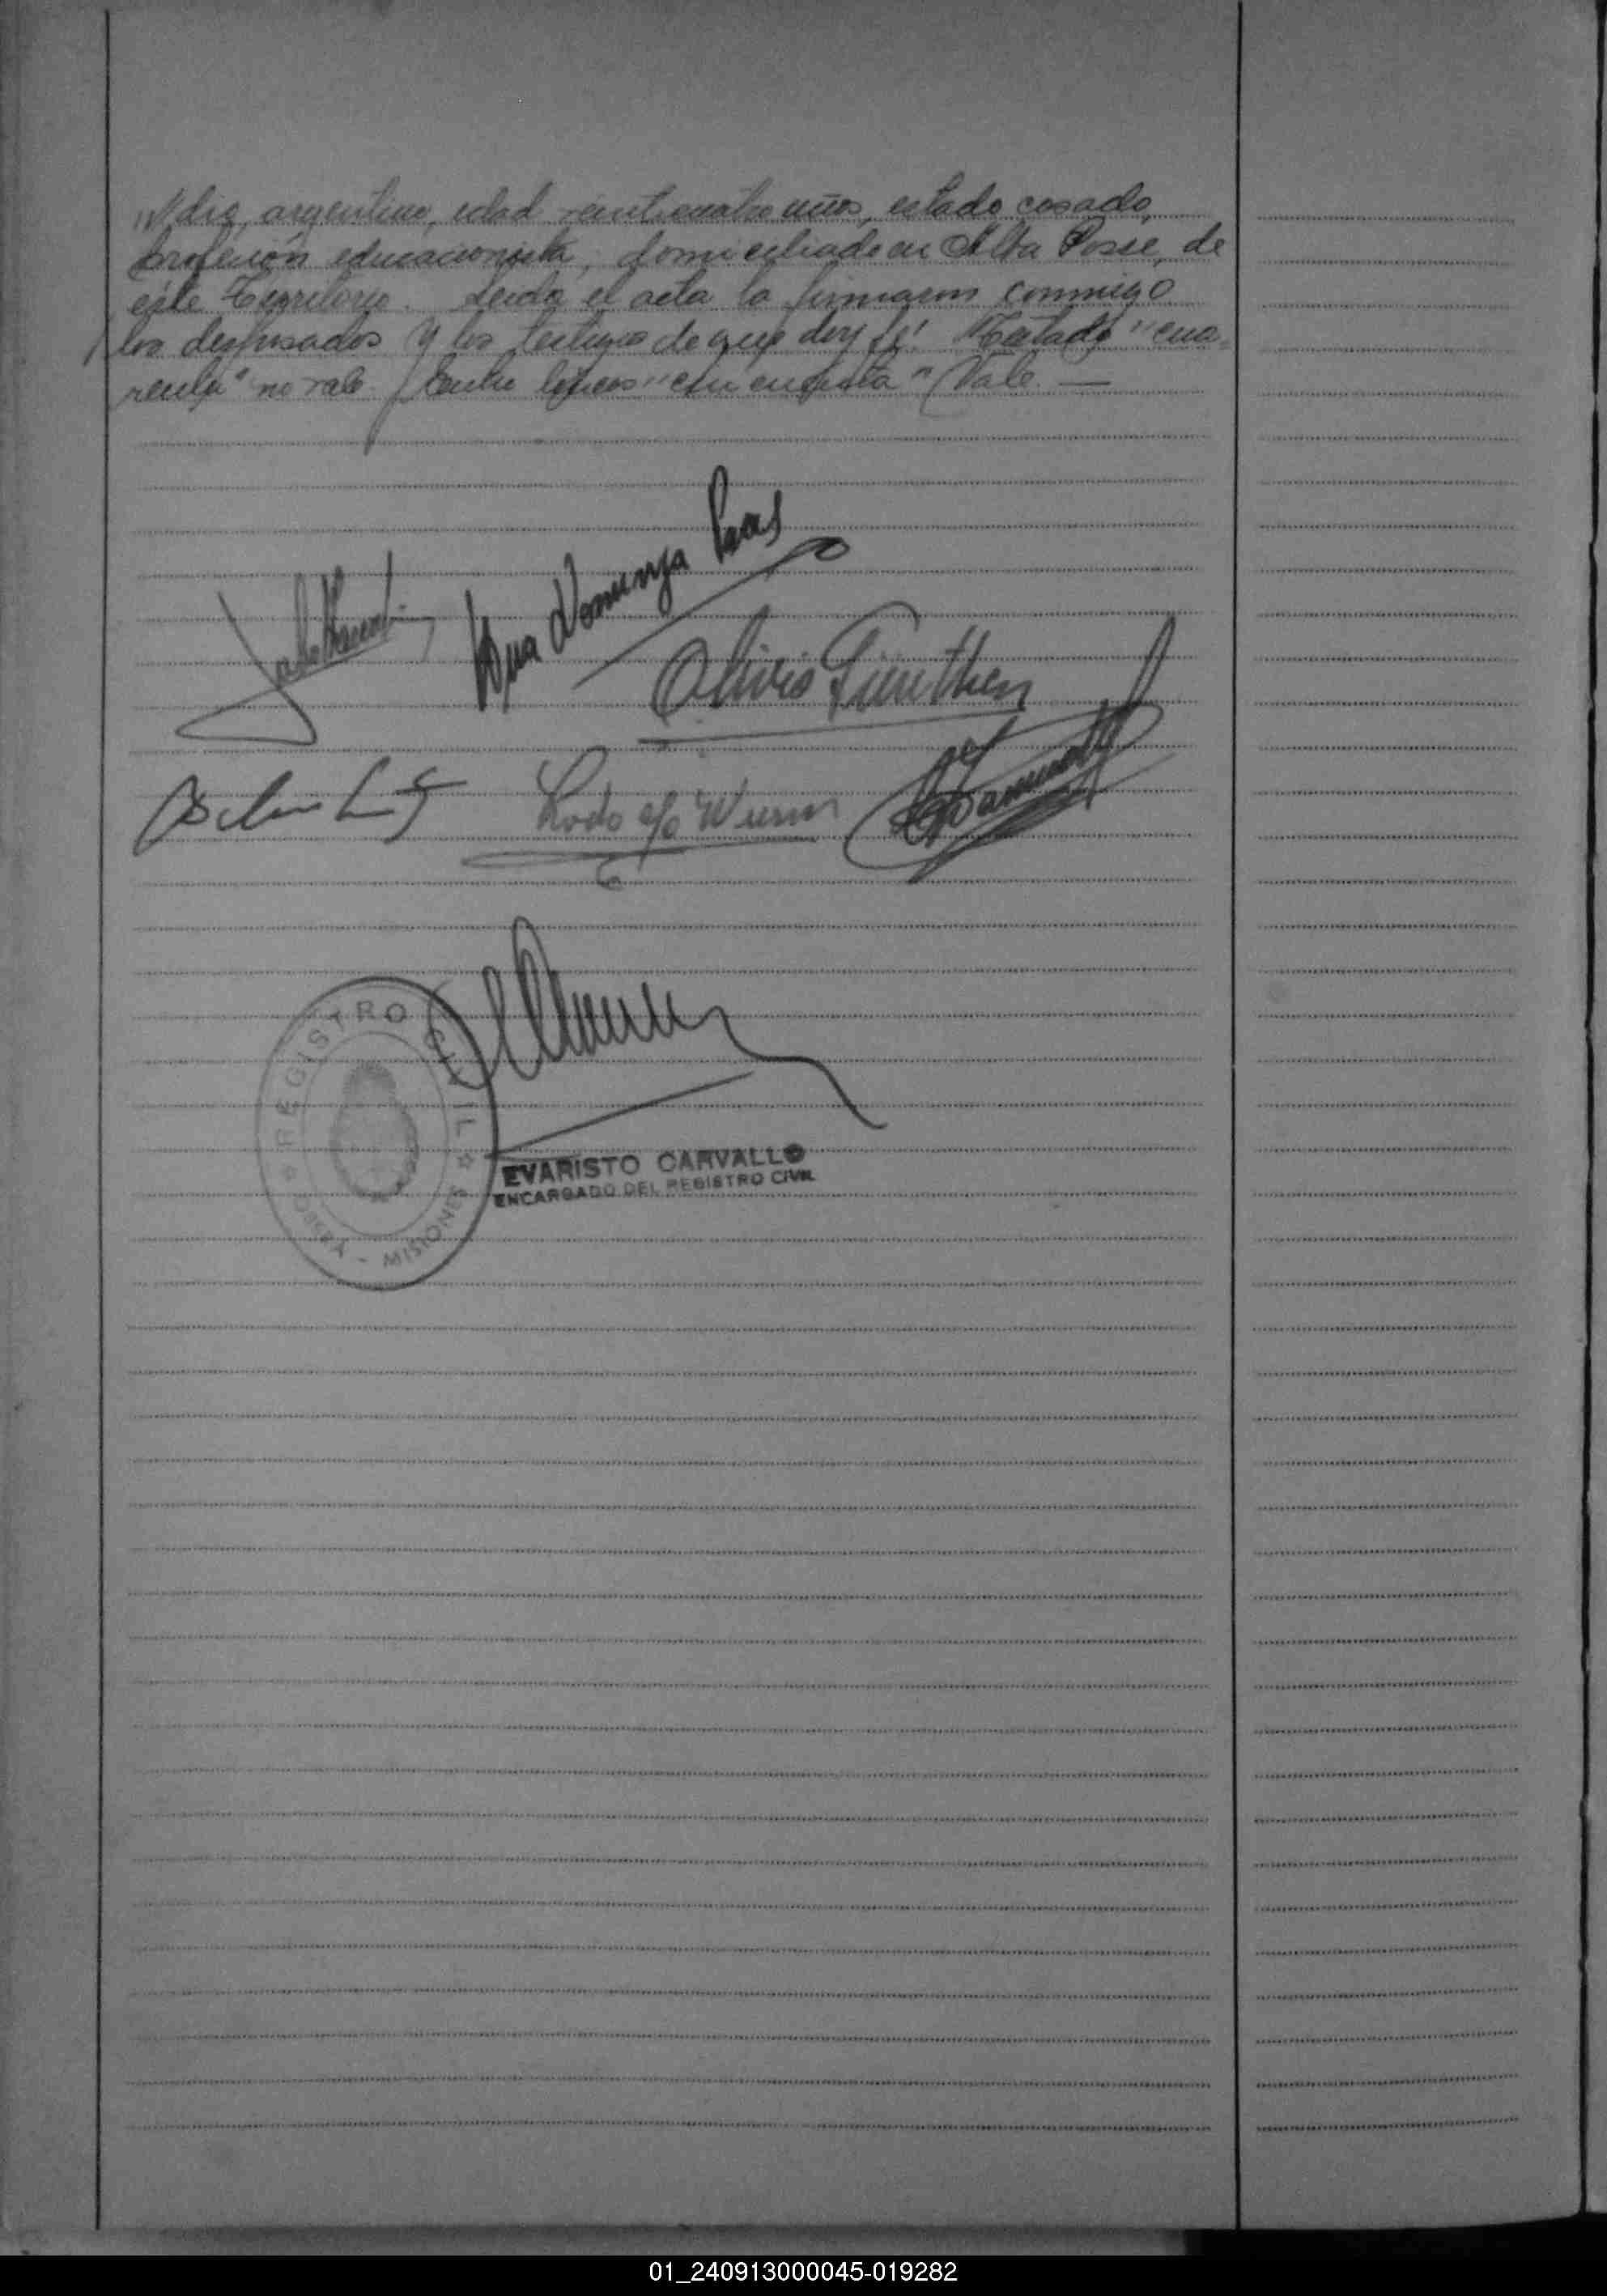 argentino, edad veinticuatro años, estado casado,
profesión educacionista, domiciliado en Alba Posse, de
éste Territorio. Leída el acta la firmaron conmigo
los desposados y los testigos de que doy fé. Testado "cua-
renta" no vale. Entre líneas "cincuenta" Vale. —
Ana Dominga
Olivio Günther
Rodolfo Wurm
REGISTRO CIVIL
OBERA - MISIONES
EVARISTO CARVALLO
ENCARGADO DEL REGISTRO CIVIL
01_240913000045-019282